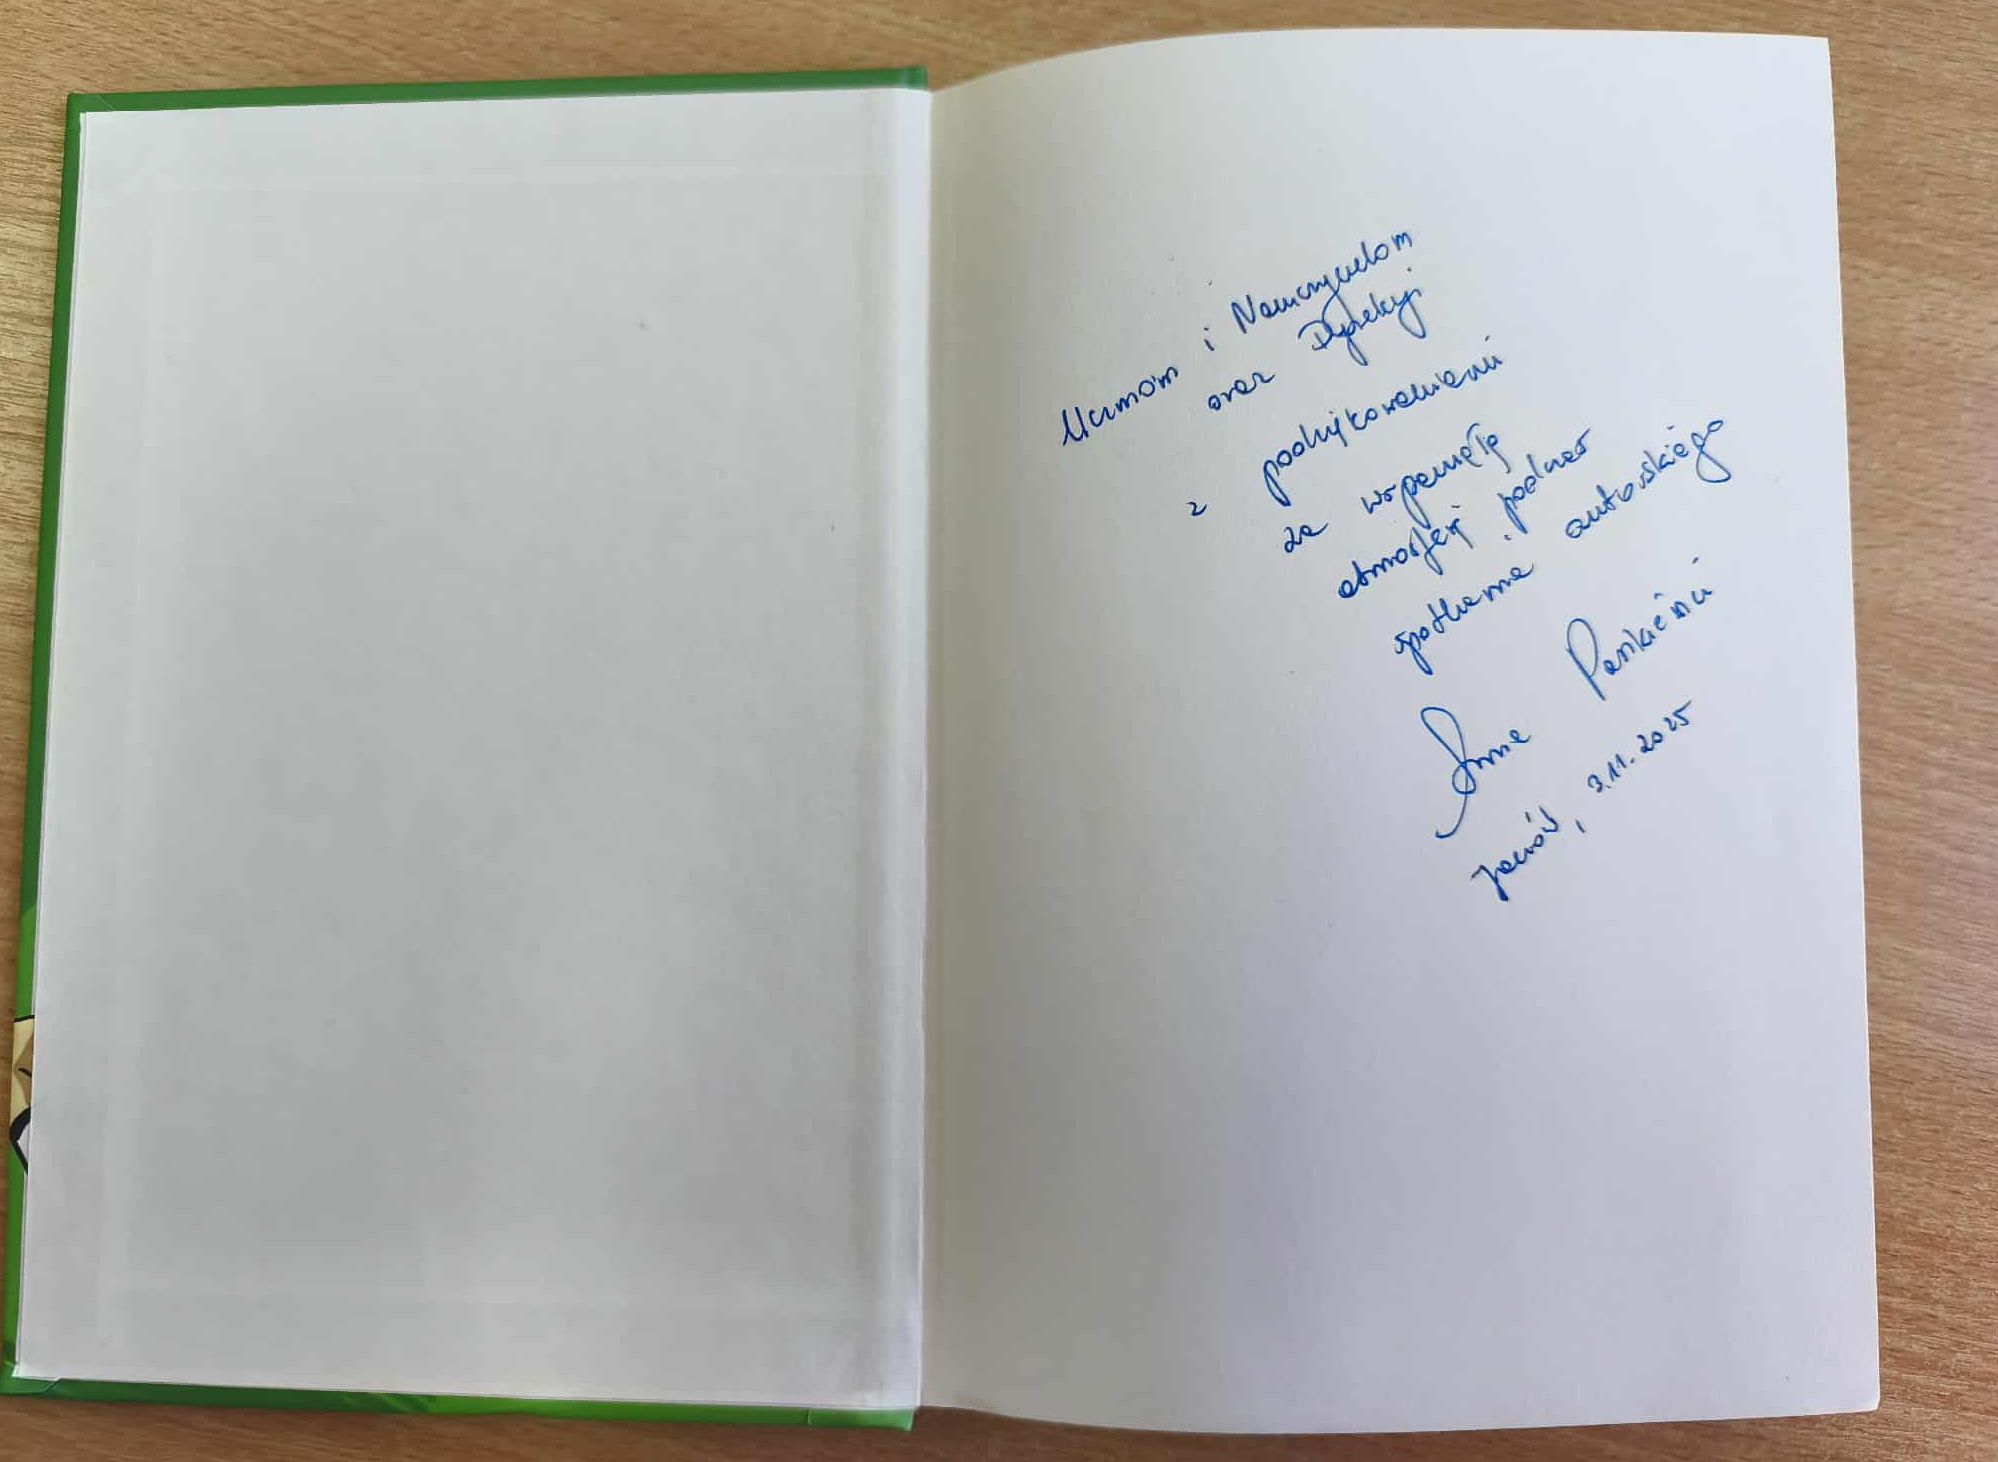 Uczniom i Nauczycielom
oraz Dyrekcji
z podziękowaniami
za wspaniałą
atmosferę podczas
spotkania autorskiego
Anna Paszkiewicz
Janów, 3.11.2025